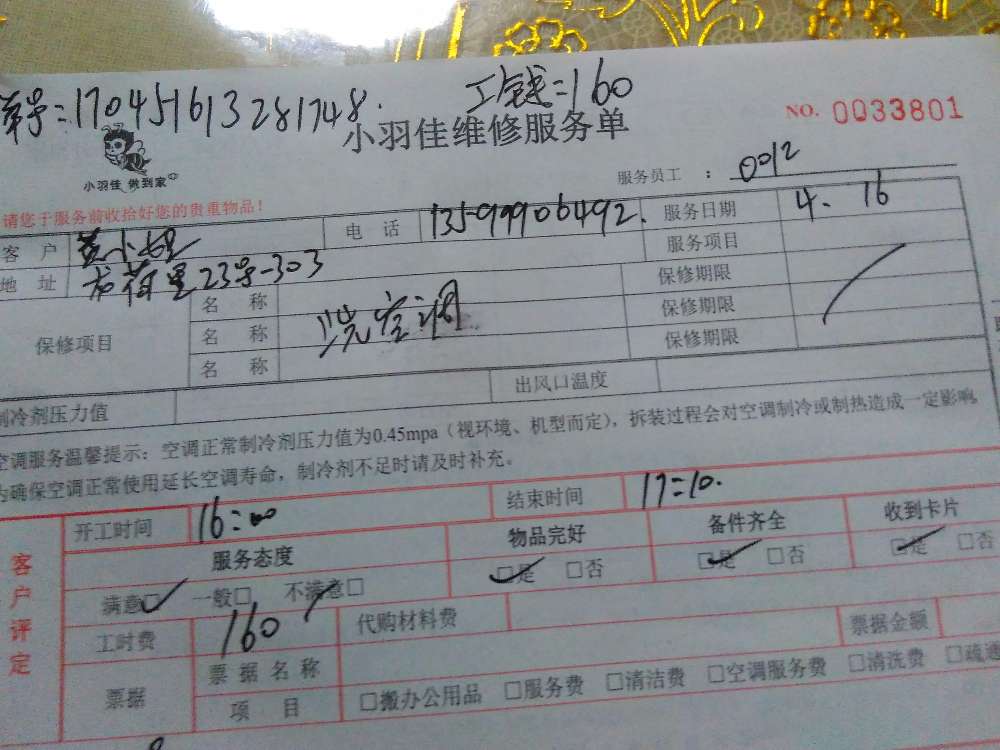 单号=170451613281748.
工钱=160
小羽佳维修服务单
NO. 0033801
小羽佳 做到家
服务员工 : 0012
请您于服务前收拾好您的贵重物品!
客 户 黄小姐 电 话 13599906492. 服务日期 4. 16
地 址 龙荷里23号-303 服务项目
保修项目 名 称 洗空调 保修期限
名 称 保修期限
名 称 保修期限
制冷剂压力值 出风口温度
空调服务温馨提示:空调正常制冷剂压力值为0.45mpa(视环境、机型而定),拆装过程会对空调制冷或制热造成一定影响,
为确保空调正常使用延长空调寿命,制冷剂不足时请及时补充。
客户评定
开工时间 16:00 结束时间 17:10.
服务态度 物品完好 备件齐全 收到卡片
满意☑ 一般□ 不满意□ ☑是 □否 ☑是 □否 ☑是 □否
工时费 160 代购材料费 票据金额
票据 票据名称
项 目 □搬办公用品 □服务费 □清洁费 □空调服务费 □清洗费 □疏通